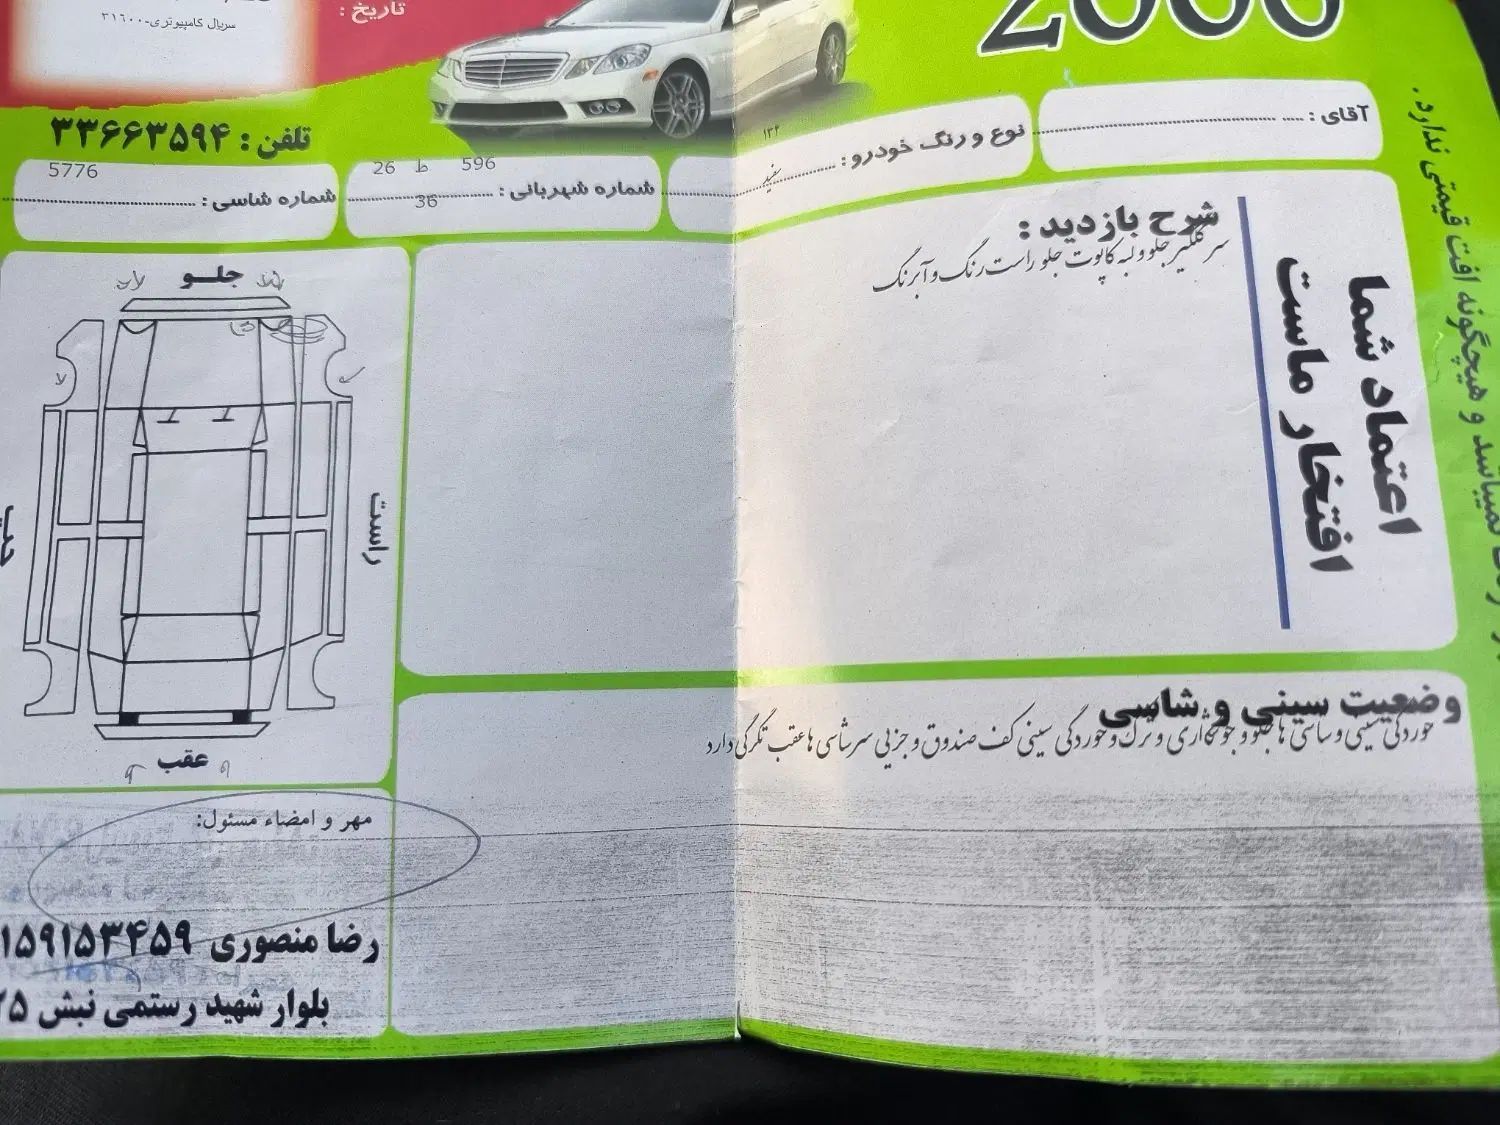 2006
تاریخ :
سریال کامپیوتری-۳۱۶۰۰
تلفن : ۳۳۶۶۳۵۹۴
آقای :
نوع و رنگ خودرو :
۱۳۲
سفید
شماره شهربانی :
596 ط 26
36
شماره شاسی :
5776
شرح بازدید :
سر گلگیر جلو و لبه کاپوت جلو راست رنگ و آبرنگ
اعتماد شما
افتخار ماست
نمیباشد و هیچگونه افت قیمتی ندارد.
جلو
راست
چپ
عقب
وضعیت سینی و شاسی
خوردگی سینی و شاسی ها جلو و جوشکاری و ترک و خوردگی سینی کف صندوق و جزیی سر شاسی ها عقب تگرگی دارد
مهر و امضاء مسئول:
رضا منصوری ۱۵۹۱۵۳۴۵۹
بلوار شهید رستمی نبش ۲۵